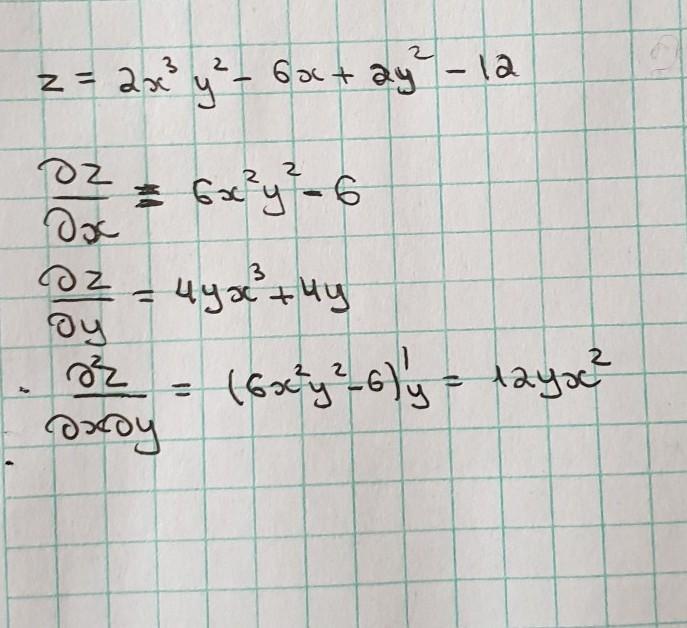 z = 2x³y² - 6x + 2y² - 12
∂z/∂x = 6x²y² - 6
∂z/∂y = 4yx³ + 4y
∂²z/∂x∂y = (6x²y² - 6)'y = 12yx²